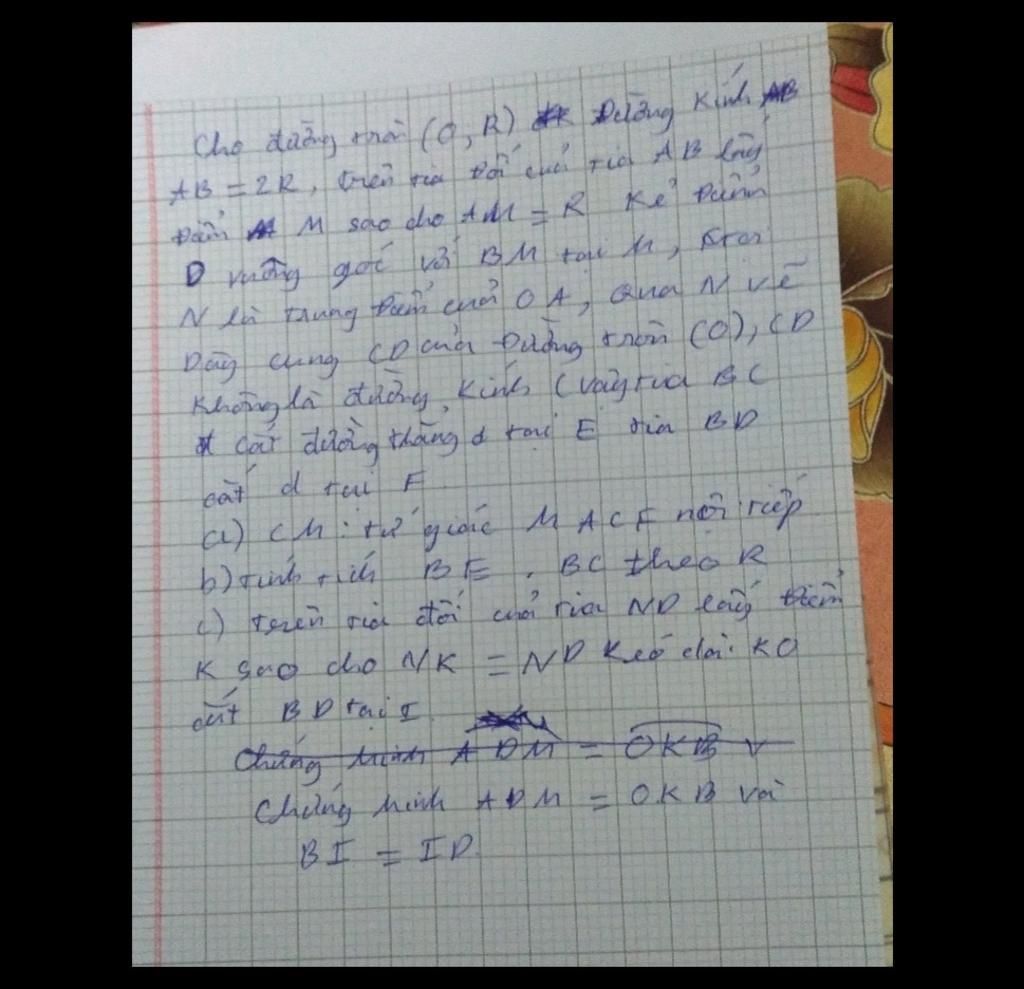 Cho đường tròn (O, R) Đường kính AB
AB = 2R, trên tia đối của tia AB lấy
điểm M sao cho AM = R Kẻ
D vuông góc với BM tại M,
N là trung điểm của OA, Qua N vẽ
Dây cung CD của Đường tròn (O), CD
không là đường kính (vẽ tia BC
cắt đường thẳng d tại E tia BD
cắt d tại F
a) CM : tứ giác MACE nội tiếp
b) tính tích BE . BC theo R
c) trên tia đối của tia ND lấy điểm
K sao cho NK = ND Kéo dài KO
cắt BD tại I
Chứng minh ADM = OKB v
Chứng minh ADM = OKB và
BI = ID.